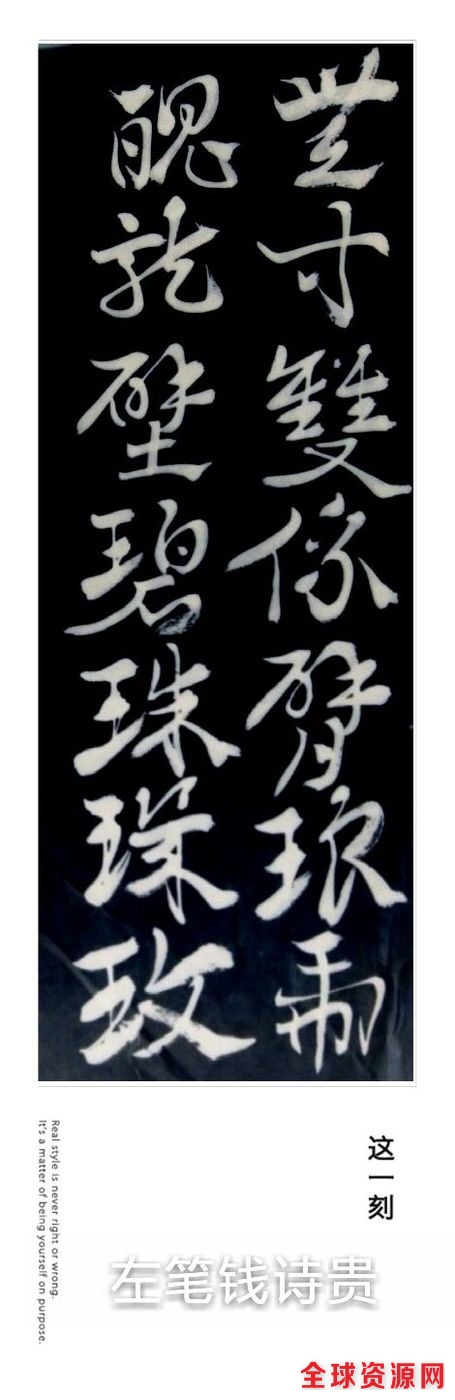 寸雙臂琅
壁碧珠琛玫
这一刻
Real style is never right or wrong.
It's a matter of being yourself on purpose.
左笔钱诗贵
全球资源网